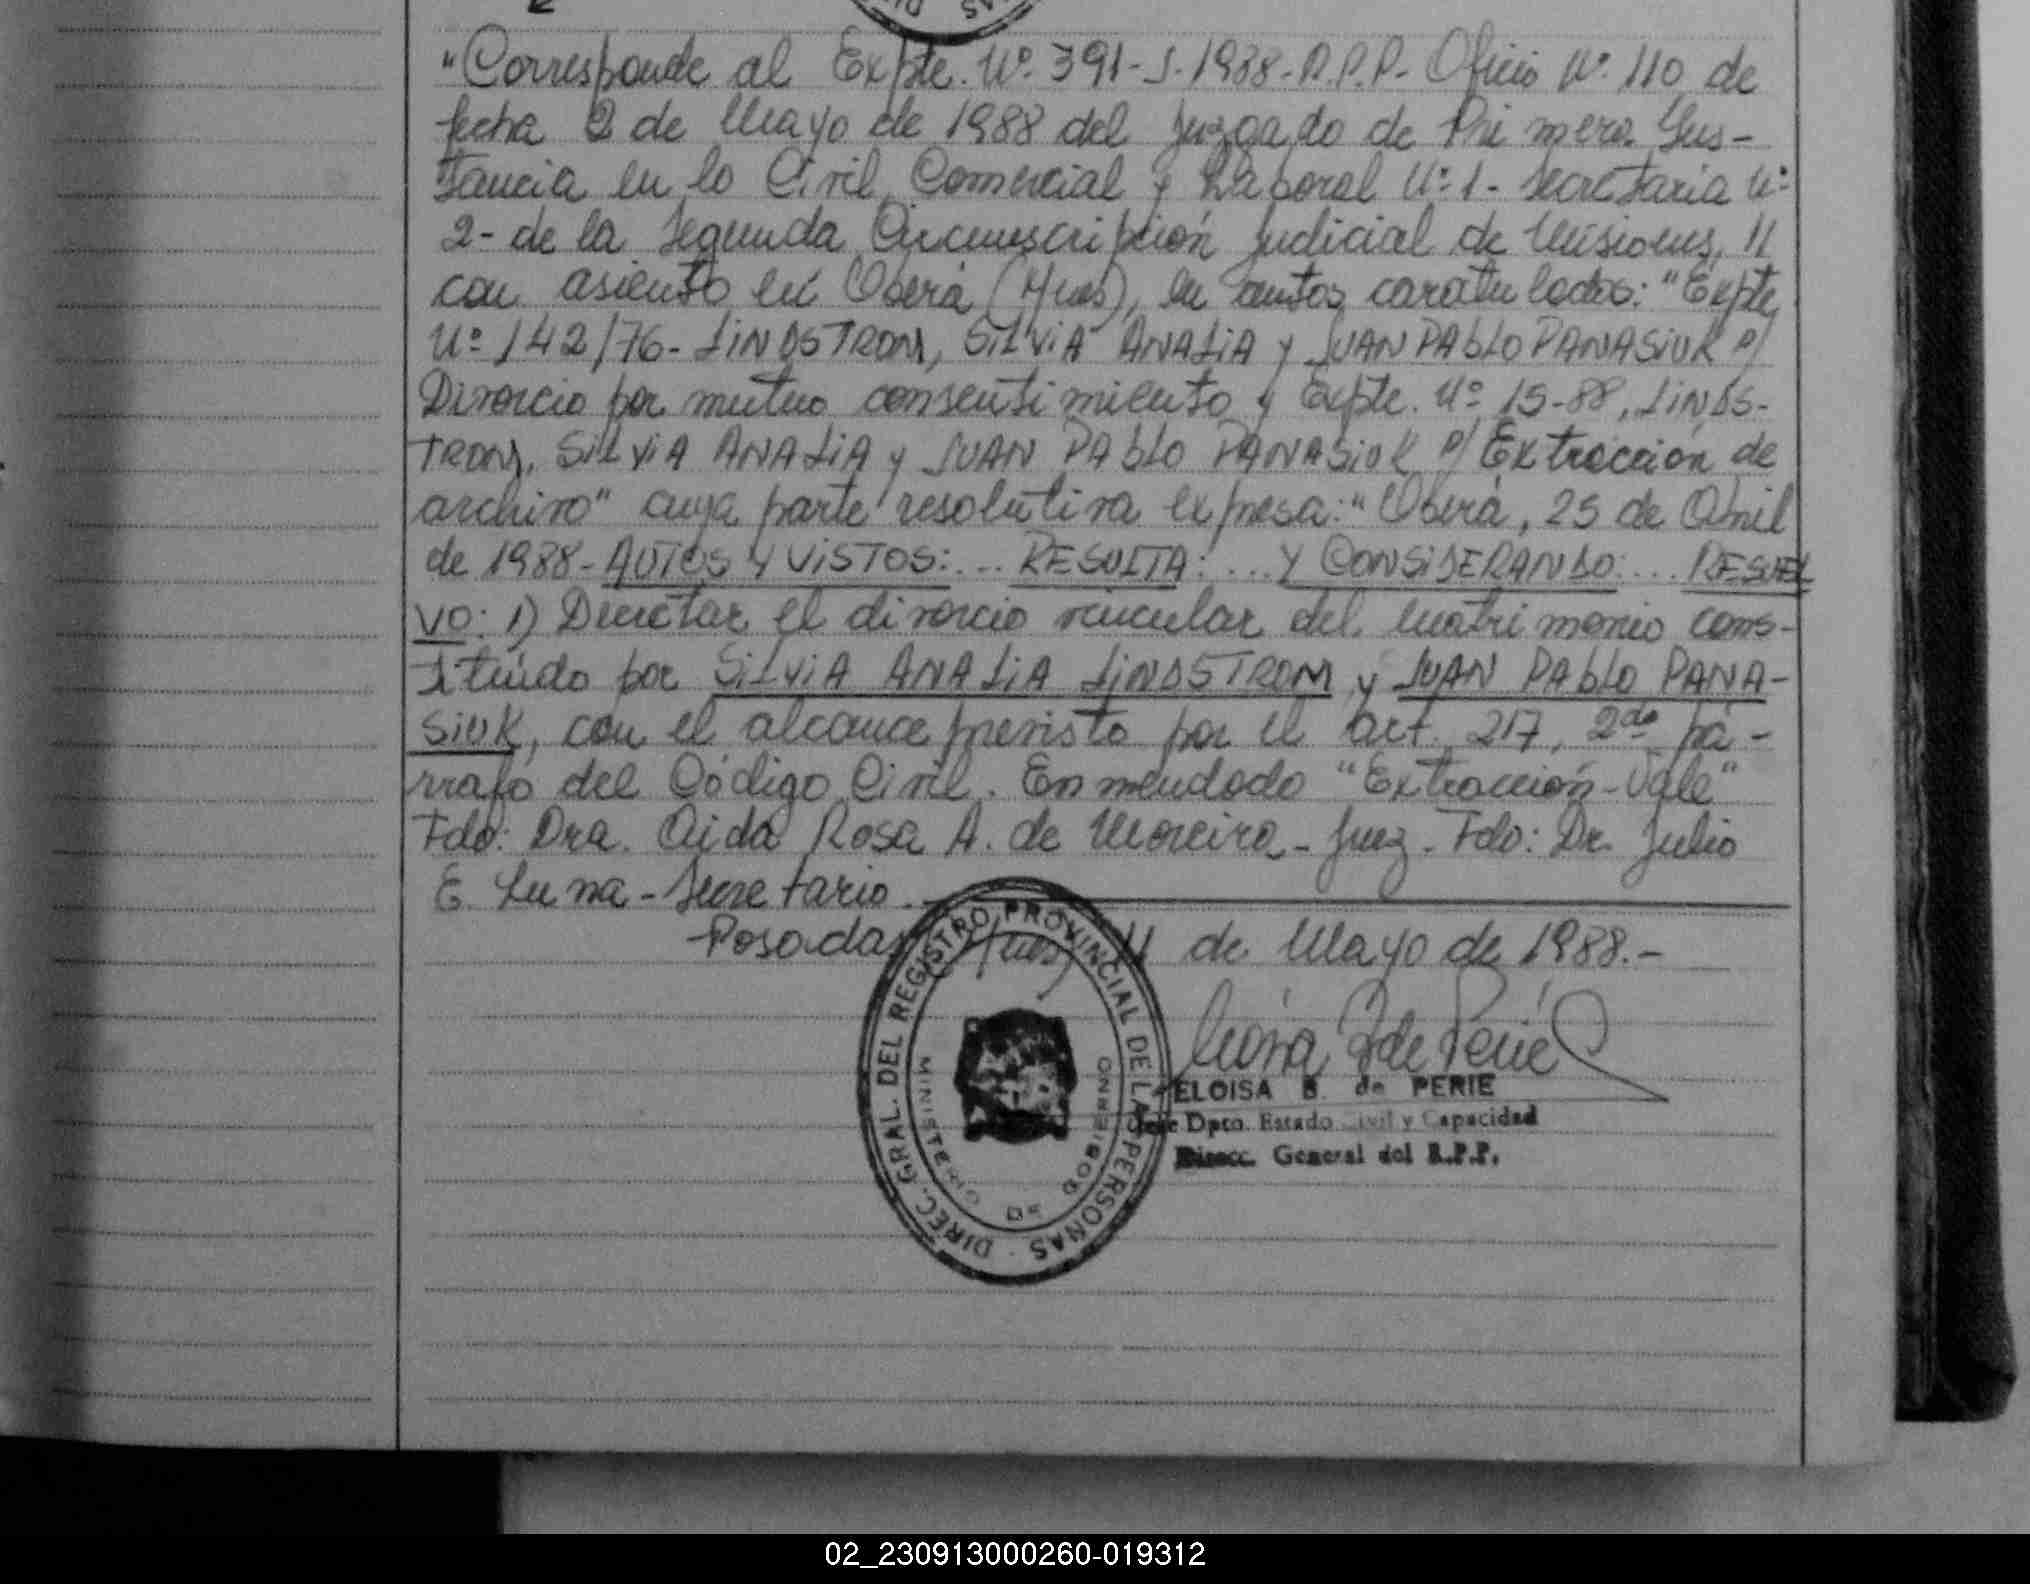 "Corresponde al Expte. Nº 391-J-1988-R.P.P. Oficio Nº 110 de
fecha 2 de Mayo de 1988 del Juzgado de Primera Ins-
tancia en lo Civil, Comercial y Laboral Nº 1 - Secretaria Nº
2 - de la Segunda Circunscripción Judicial de Misiones, //
con asiento en Oberá (Mnes), en autos caratulados: "Expte
Nº 142/76 - LINDSTROM, SILVIA ANALIA y JUAN PABLO PANASIUK P/
Divorcio por mutuo consentimiento y Expte. Nº 15-88, LINDS-
TROM, SILVIA ANALIA y JUAN PABLO PANASIUK P/ Extracción de
archivo" cuya parte resolutiva expresa: "Oberá, 25 de Abril
de 1988 - AUTOS Y VISTOS: ... RESULTA: ... Y CONSIDERANDO: ... RESUEL
VO: 1) Decretar el divorcio vincular del matrimonio cons-
tituído por SILVIA ANALIA LINDSTROM y JUAN PABLO PANA-
SIUK, con el alcance previsto por el art. 217, 2do pá-
rrafo del Código Civil. Enmendado "Extracción - Vale"
Fdo: Dra. Aida Rosa A. de Moreira - Juez - Fdo: Dr. Julio
E. Luna - Secretario.
Posadas (Mnes) 11 de Mayo de 1988.-
DIREC. GRAL. DEL REGISTRO PROVINCIAL DE LAS PERSONAS
MINISTERIO DE GOBIERNO
ELOISA B. de PERIE
Jefe Dpto. Estado Civil y Capacidad
Direcc. General del R.P.P.
02_230913000260-019312